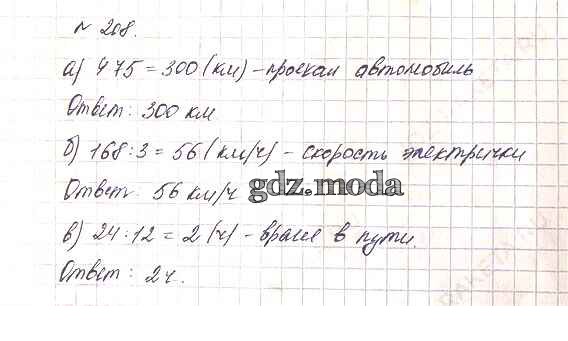 № 208.
а) 4 75 = 300 (км) – проехал автомобиль
Ответ: 300 км
б) 168 : 3 = 56 (км/ч) – скорость электрички
Ответ: 56 км/ч
gdz.moda
в) 24 : 12 = 2 (ч) – время в пути.
Ответ: 2 ч.